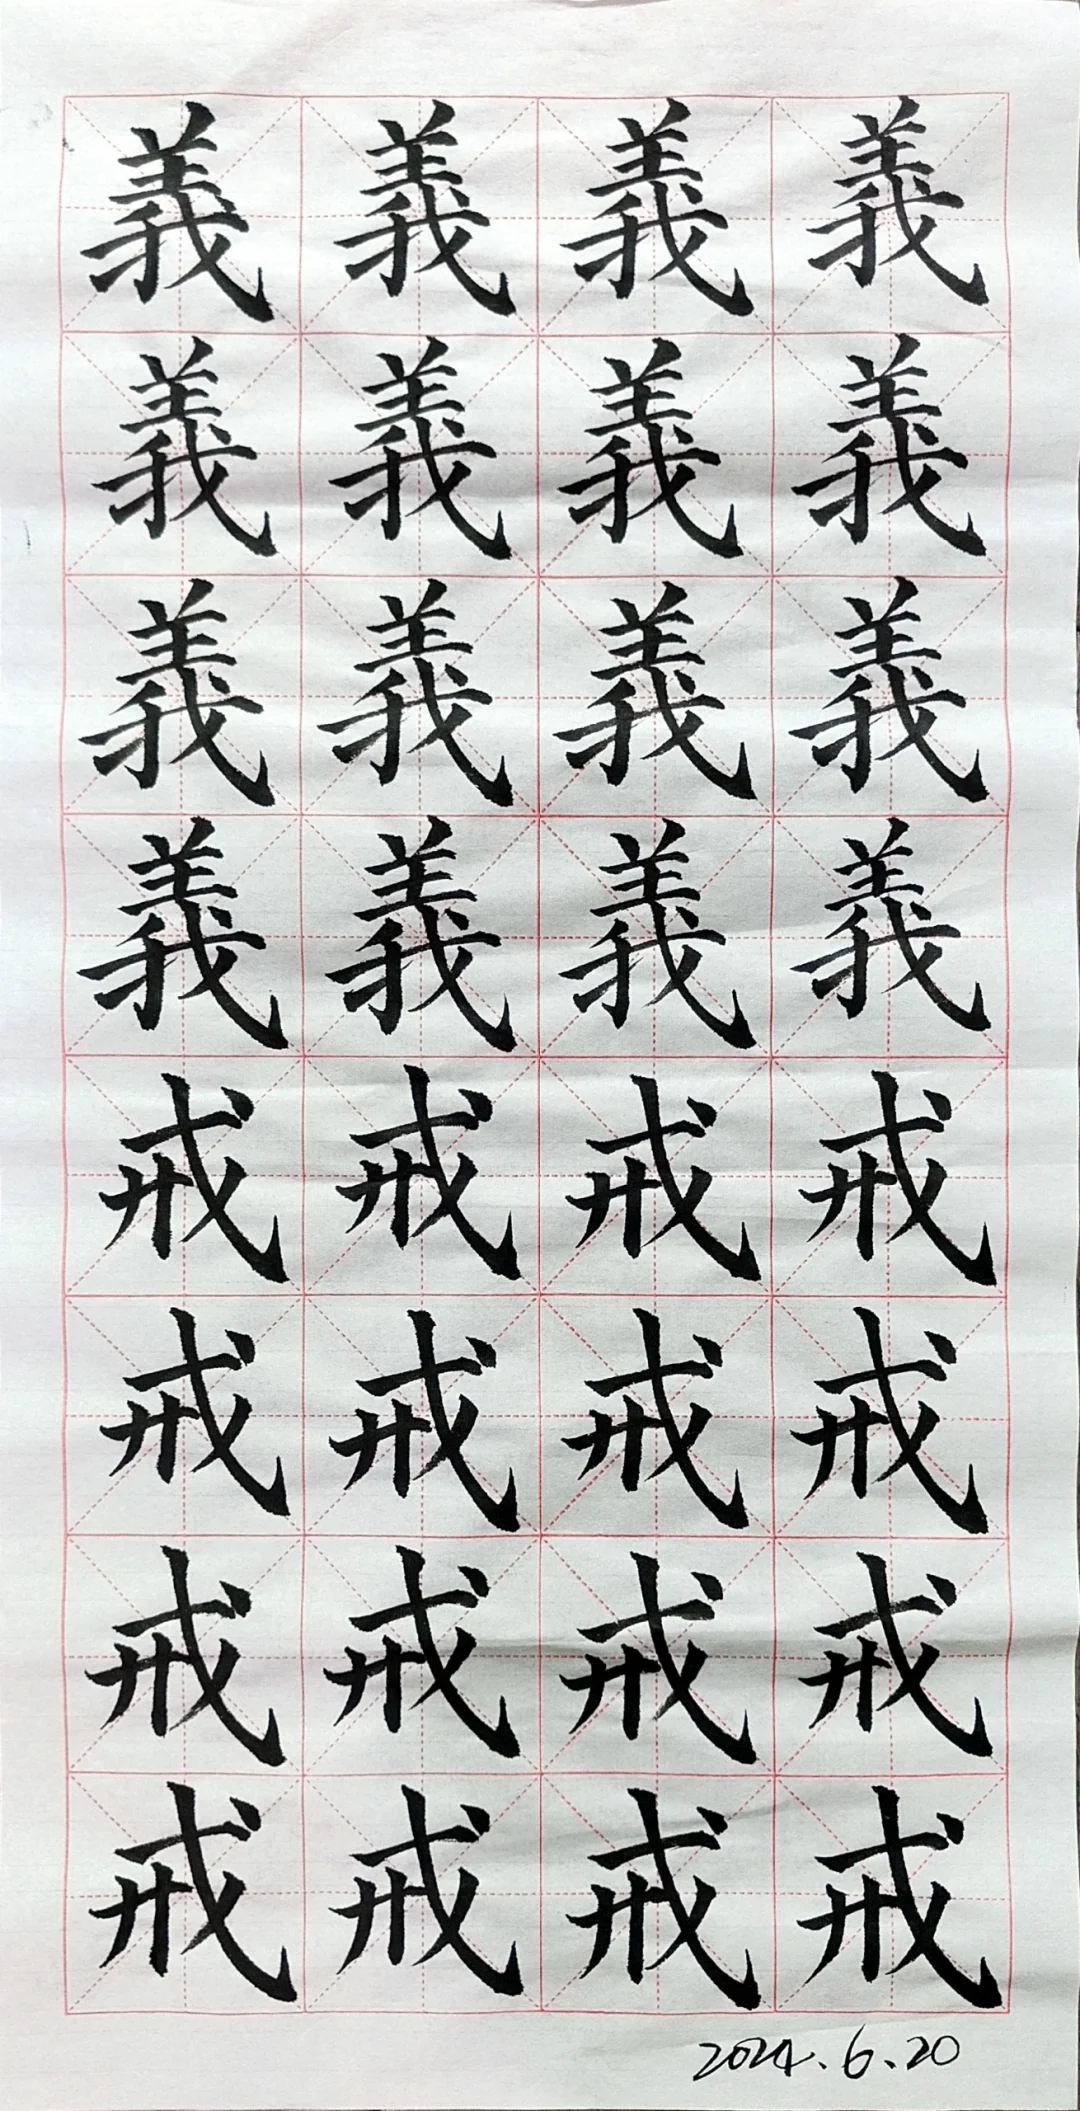 義義義義
義義義義
義義義義
義義義義
戒戒戒戒
戒戒戒戒
戒戒戒戒
戒戒戒戒
2024.6.20